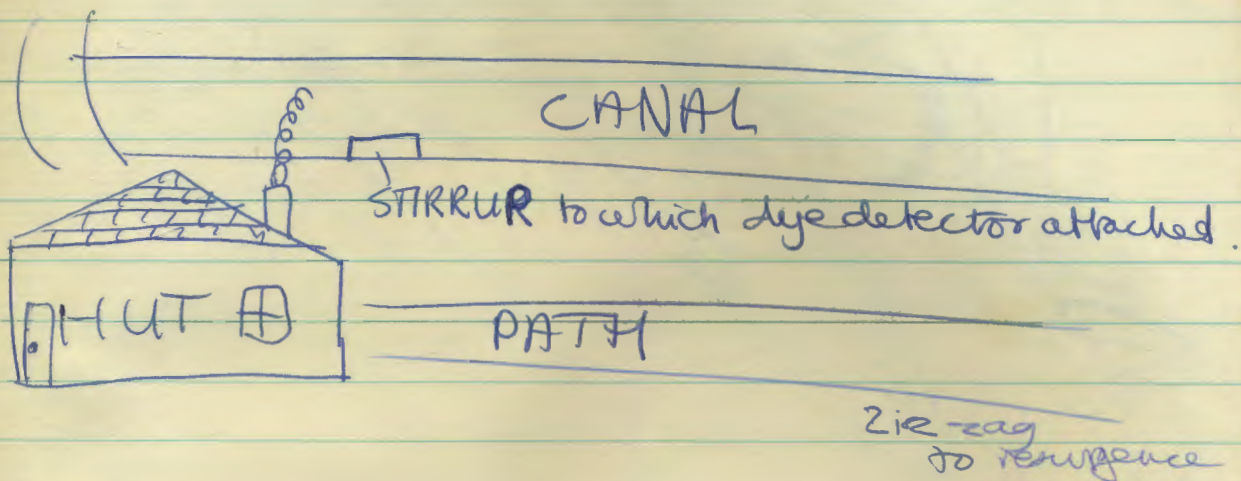 CANAL
STIRRUR to which dye detector attached.
HUT
PATH
Zig-zag
to resurgence